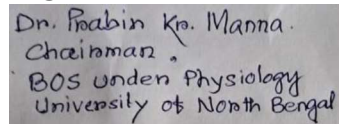 Dr. Prabin Kr. Manna.
Chairman.
BOS under Physiology
University of North Bengal